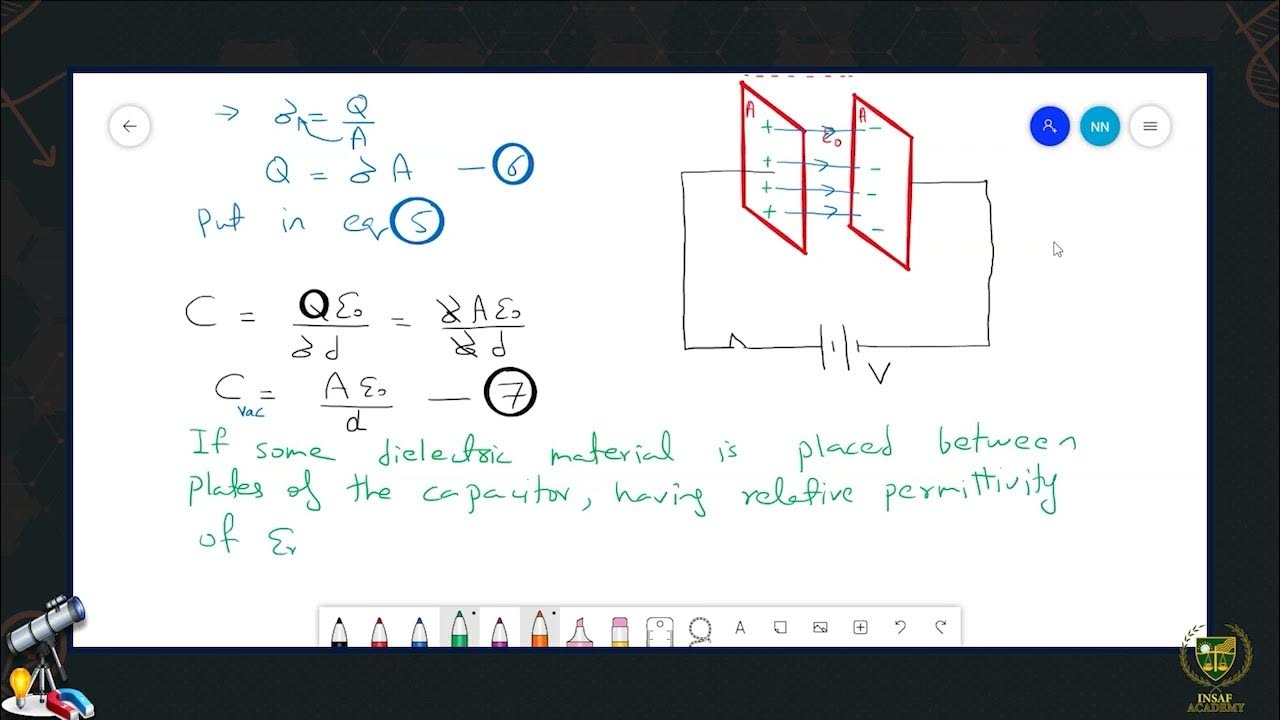 → σ = Q/A
Q = σ A — 6
Put in eq 5
C = Qε₀/σd = σAε₀/σd
C_vac = Aε₀/d — 7
If some dielectric material is placed between
plates of the capacitor, having relative permittivity
of εr
A
A
ε₀
+ + + +
− − − −
V
NN
A
INSAF
ACADEMY